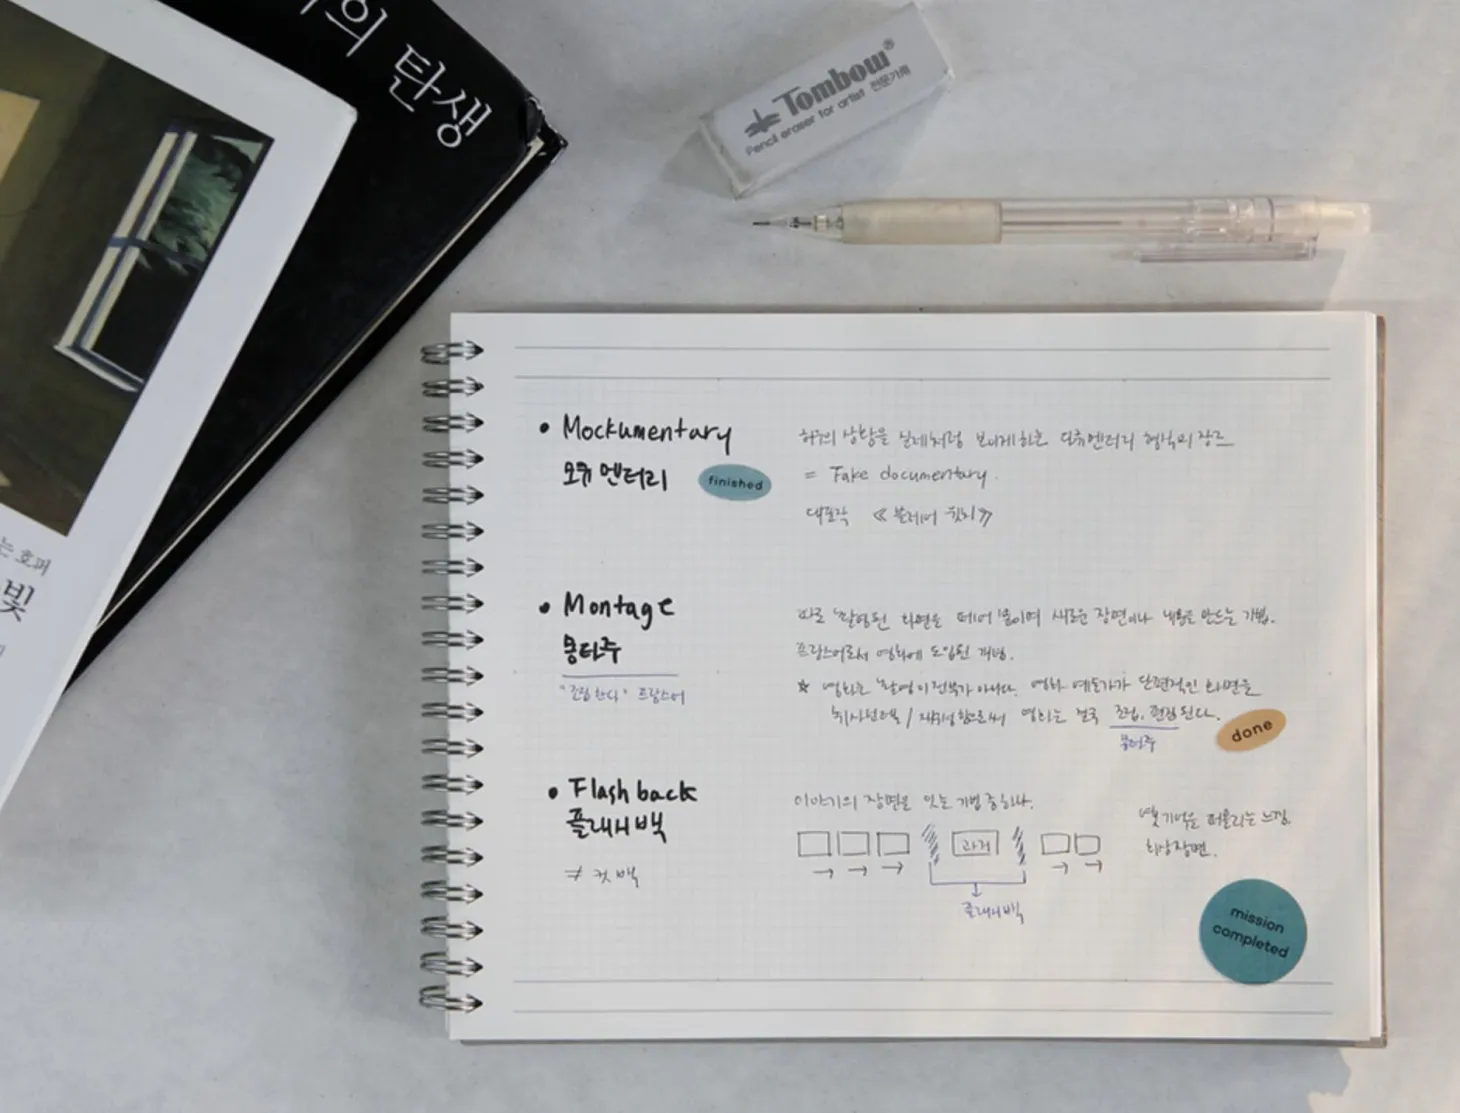 의 탄생
Tombow®
Pencil eraser for artist 전문가용
는 호퍼
빛
• Mockumentary
모큐멘터리
finished
허구의 상황을 실제처럼 보이게하는 다큐멘터리 형식의 장르
= Fake documentary.
대표작 《블레어 윗치》
• Montage
몽타주
"조립한다" 프랑스어
따로 촬영된 화면을 떼어 붙이며 새로운 장면이나 내용을 만드는 기법.
프랑스어로서 영화에 도입된 개념.
☆ 영화는 촬영이 전부가 아니다. 영화 예술가가 단편적인 화면을
취사선택/재구성함으로써 영화는 결국 조립, 편집된다.
몽타주
done
• Flash back
플래시백
≠ 컷백
이야기의 장면을 잇는 기법 중 하나.
과거
플래시백
옛 기억을 떠올리는 느낌.
회상장면.
mission
completed